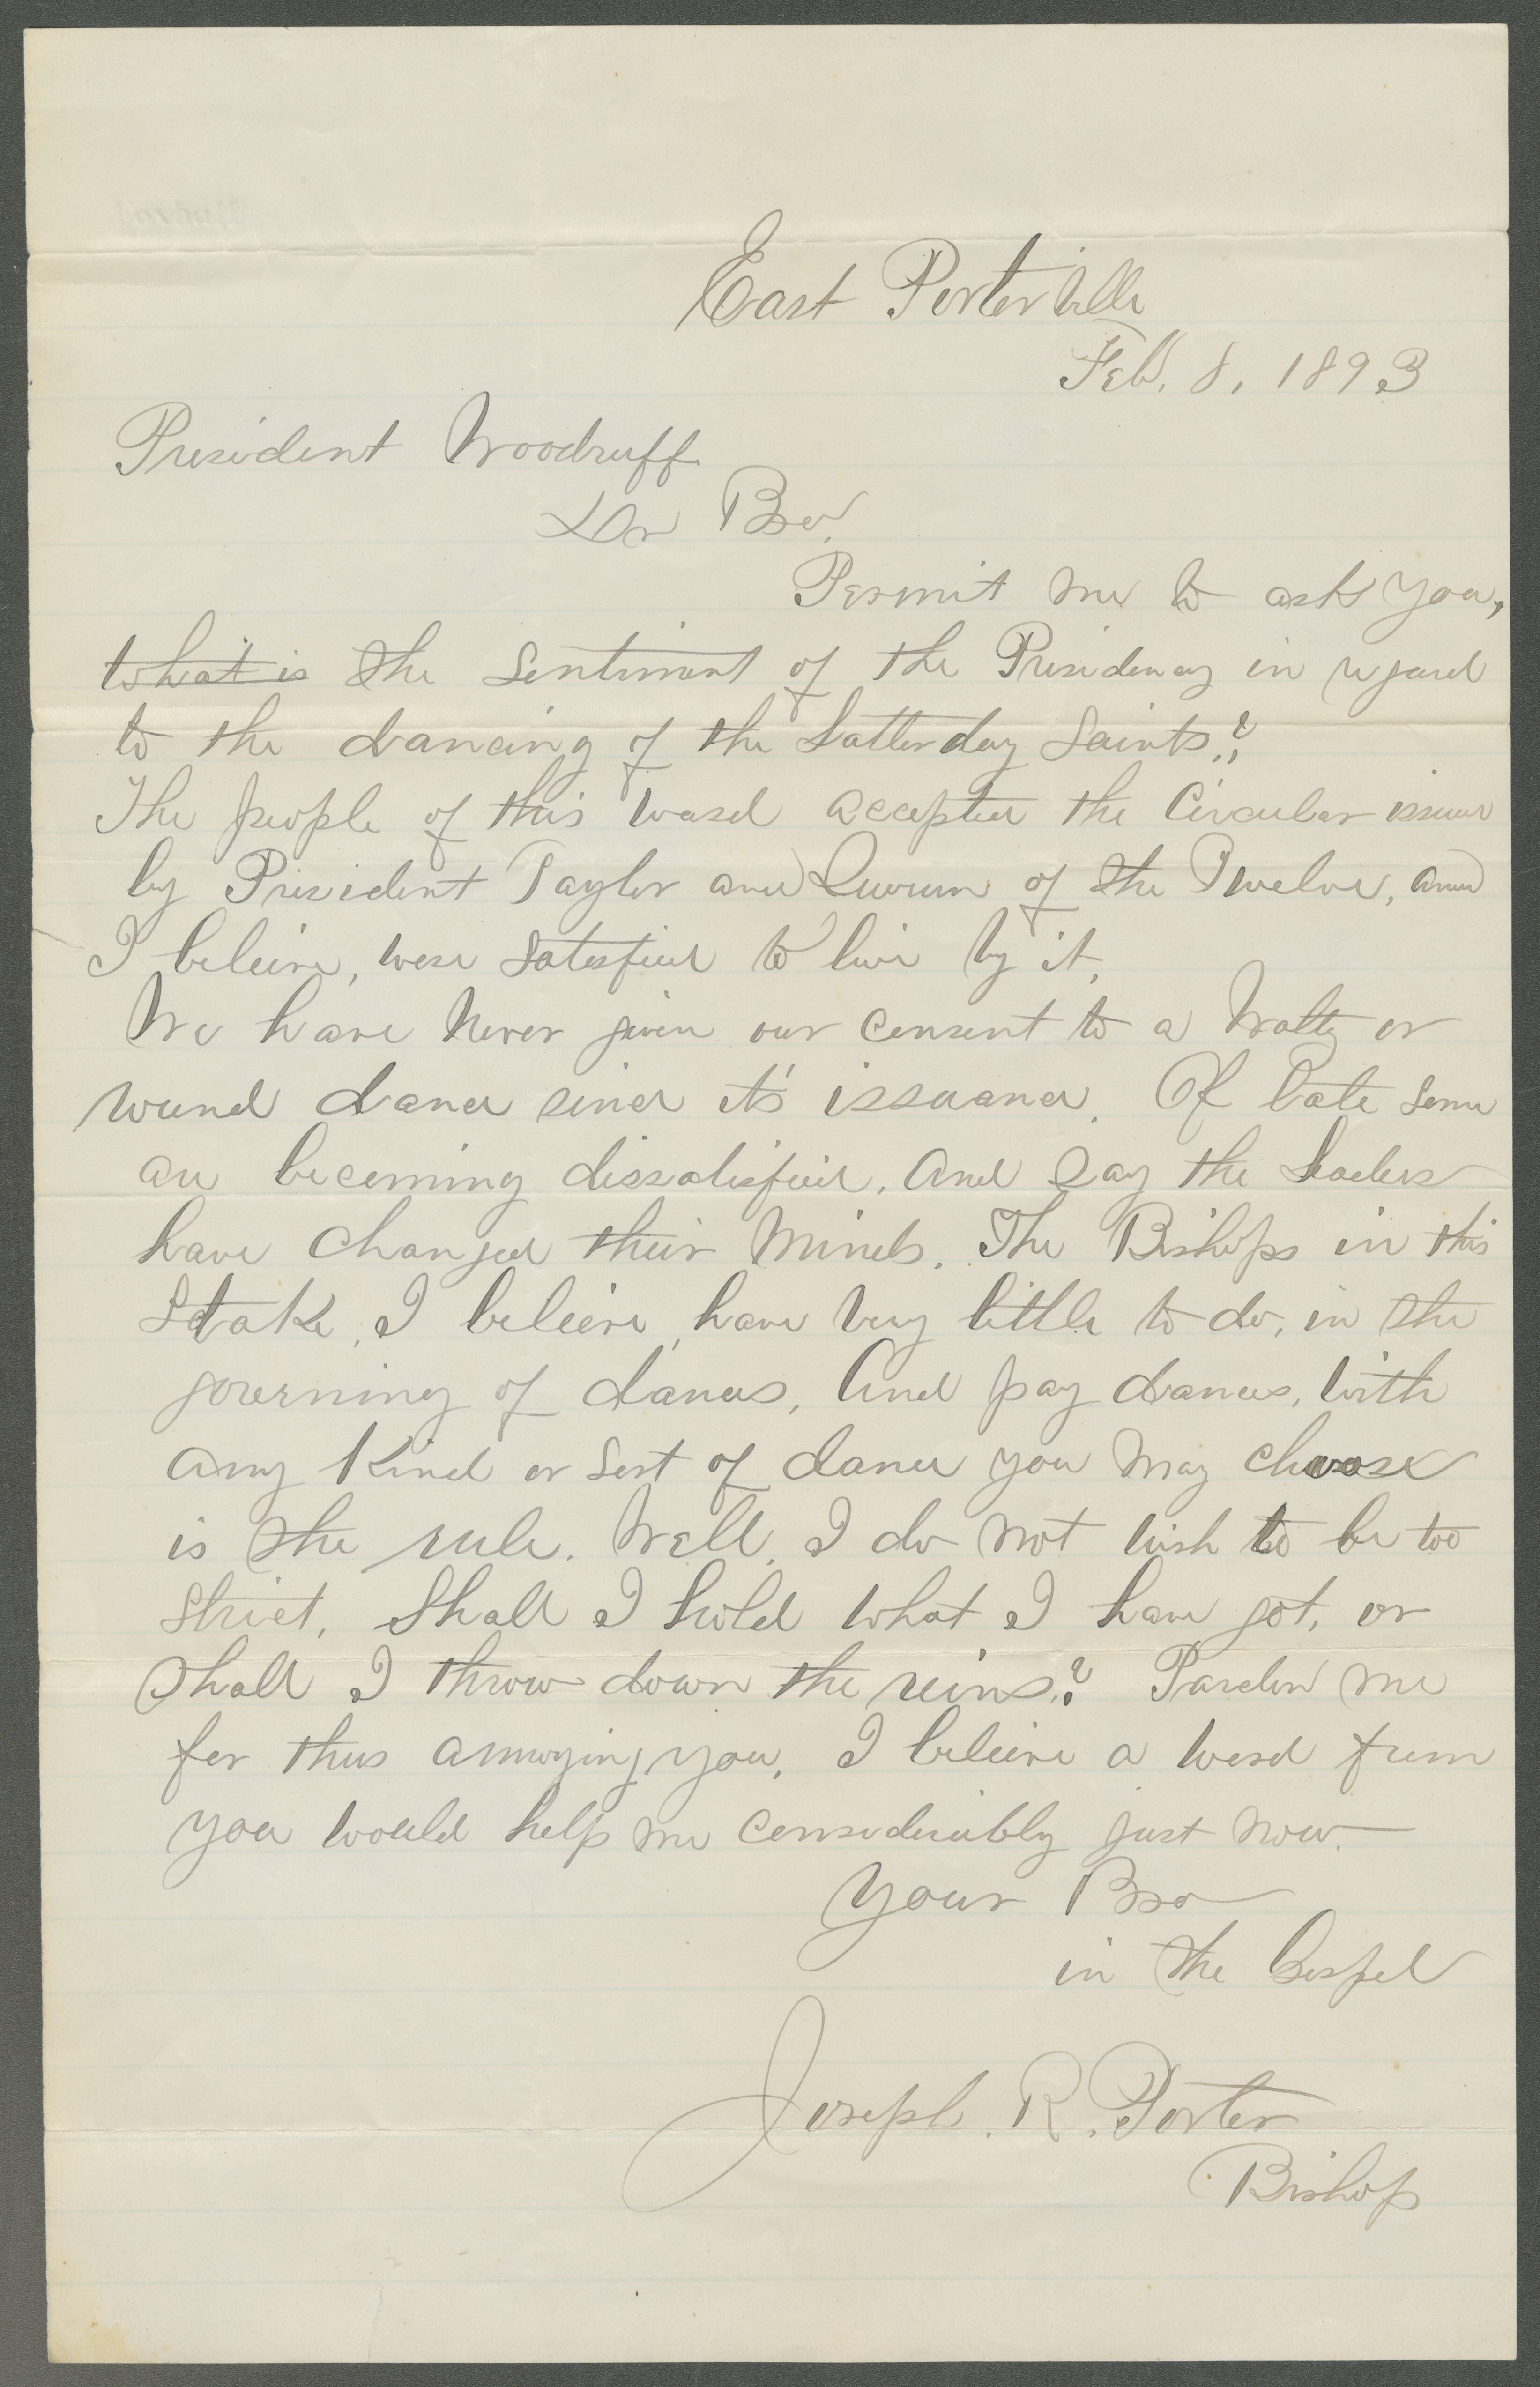 East Porterville
Feb. 8, 1893
President Woodruff
Dr Bro.
Permit me to ask you,
what is the Sentiment of the Presidency in regard
to the dancing of the Latterday Saints.?
The people of this ward accepted the Circular issued
by President Taylor and Quorum of the Twelve, and
I beleive, were satesfied to live by it.
We have Never given our consent to a Waltz or
round dance since it's issuance. Of late some
are becoming dissatisfied, and Say the leaders
have changed their Minds. The Bishops in this
Stake, I beleive, have very little to do, in the
governing of dances, And pay dances, with
any Kind or sort of dance you may choose
is the rule. Well, I do not wish to be too
strict, Shall I hold what I have got, or
Shall I throw down the reins.? Pardon me
for thus annoying you, I beleive a word from
you would help me considerably just now.
Your Bro
in the Gospel
Joseph. R. Porter
Bishop